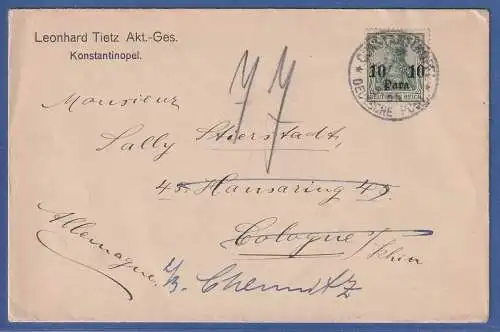 Leonhard Tietz Akt.-Ges.
Konstantinopel.
10 10
Para
DEUTSCHES REICH
CONSTANTINOPEL
DEUTSCHE POST
77
Monsieur
Sally Stierstadt,
45 Hansaring 45
Cologne s/Rhin
Allemagne.
Chemnitz